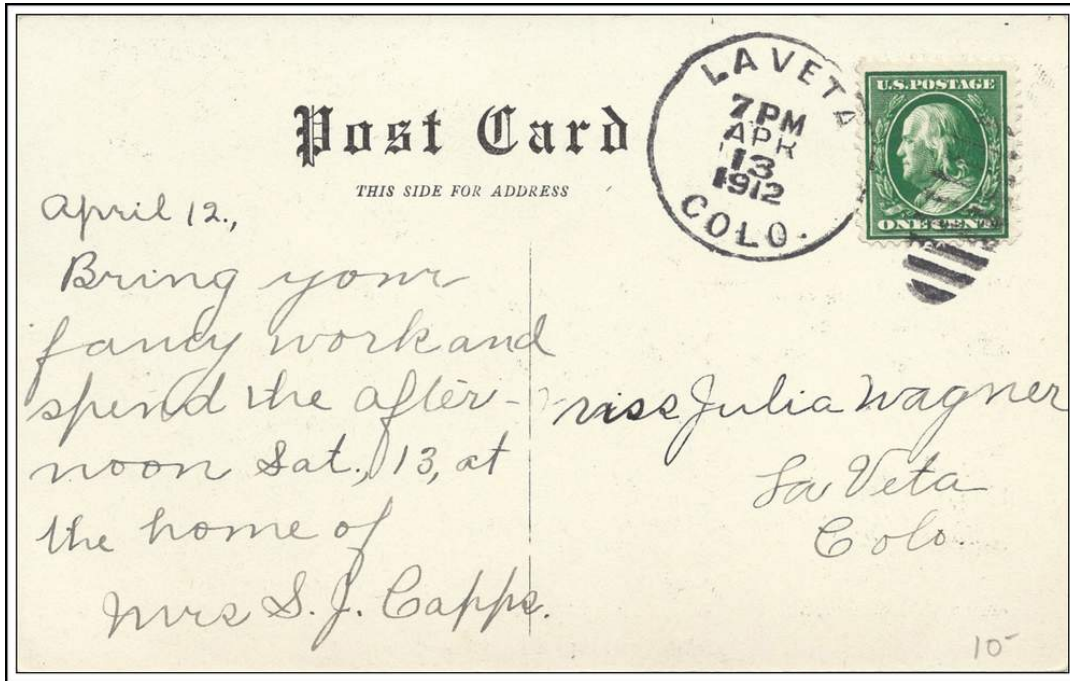 Post Card
THIS SIDE FOR ADDRESS
LAVETA
7 PM
APR
13
1912
COLO.
U.S. POSTAGE
ONE CENT
April 12.,
Bring your
fancy work and
spend the after-
noon Sat., 13, at
the home of
Mrs S. J. Capps.
Miss Julia Wagner
La Veta
Colo.
10-